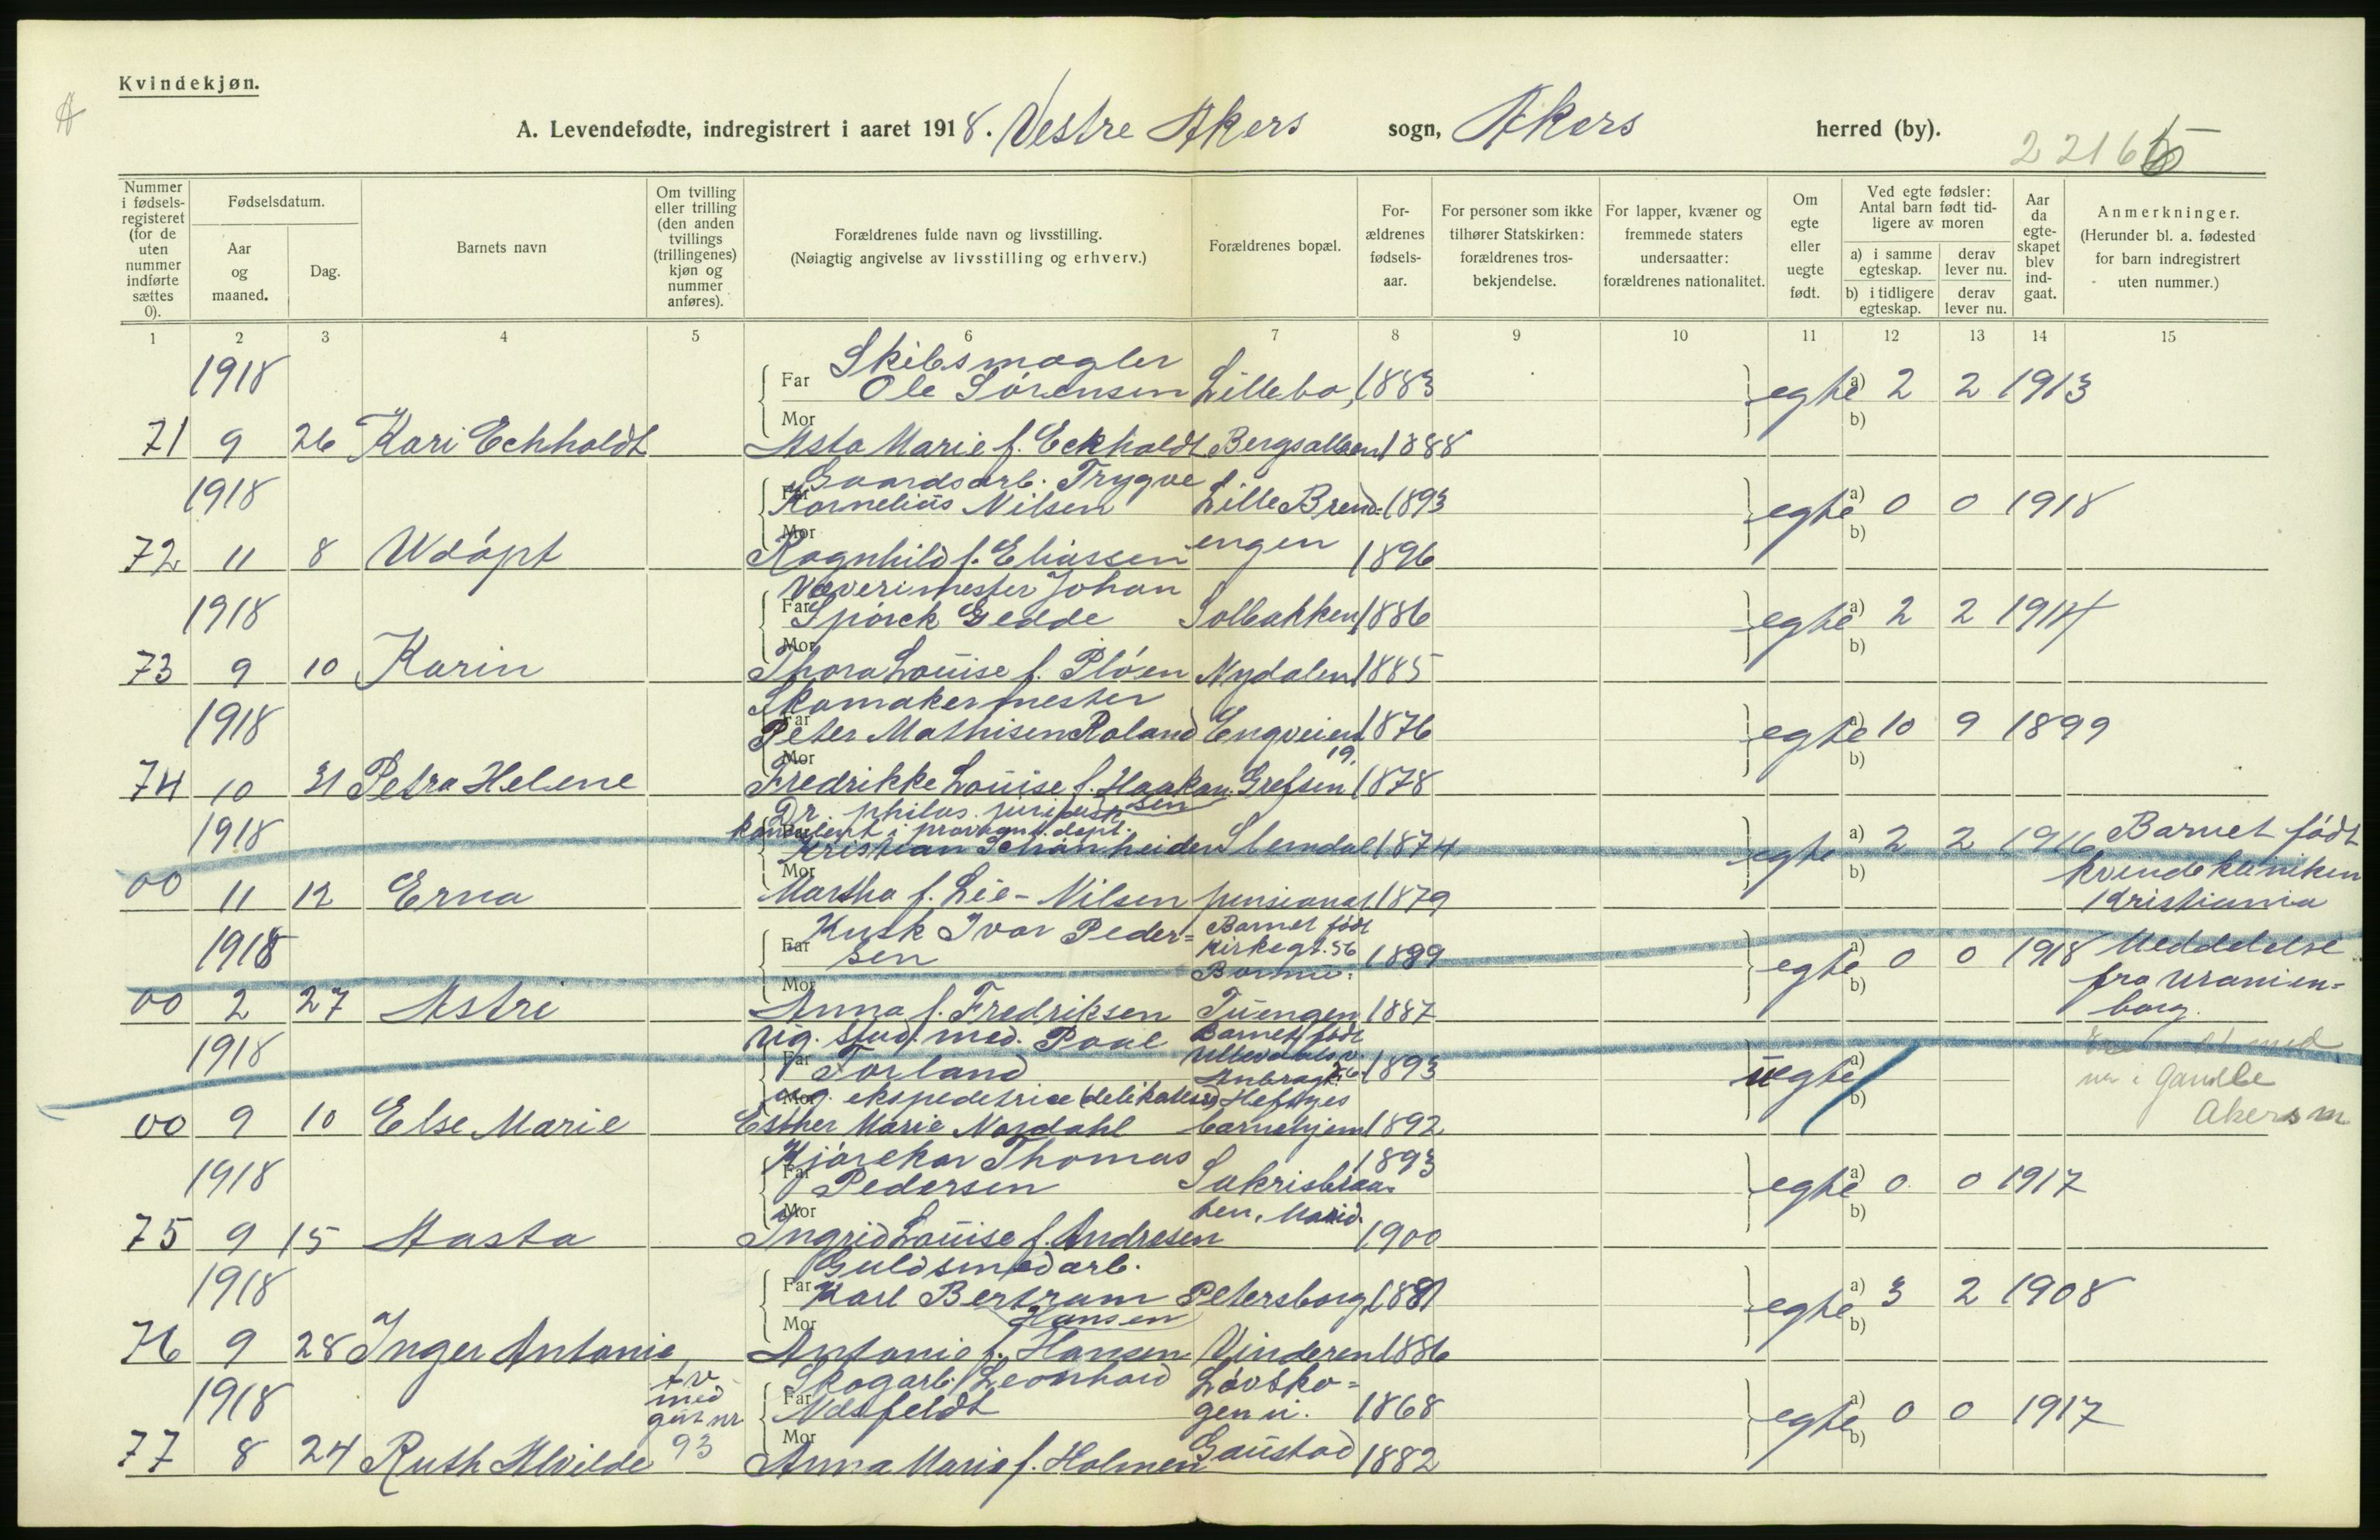 Kvindekjøn.
A. Levendefødte, indregistrert i aaret 1918. Vestre Akers sogn, Akers herred (by).
Nummer i fødsels-registeret (for de uten nummer indførte sættes 0).
Fødselsdatum.
Aar og maaned.
Dag.
Barnets navn
Om tvilling eller trilling (den anden tvillings (trillingenes) kjøn og nummer anføres).
Forældrenes fulde navn og livsstilling.
(Nøiagtig angivelse av livsstilling og erhverv.)
Forældrenes bopæl.
For-ældrenes fødsels-aar.
For personer som ikke tilhører Statskirken: forældrenes tros-bekjendelse.
For lapper, kvæner og fremmede staters undersaatter: forældrenes nationalitet.
Om egte eller uegte født.
Ved egte fødsler: Antal barn født tid-ligere av moren
a) i samme egteskap. derav lever nu.
b) i tidligere egteskap. derav lever nu.
Aar da egte-skapet blev ind-gaat.
Anmerkninger.
(Herunder bl. a. fødested for barn indregistrert uten nummer.)
1 2 3 4 5 6 7 8 9 10 11 12 13 14 15
1918 Skibsmægler
Far Ole Sørensen Lillebo, 1883 egte a) 2 2 1913
Mor b)
71 9 26 Kari Echholdt Asta Marie f. Eckholdt Bergsalleen 1888
1918 Gaardsarb. Trygve
Far Kornelius Nilsen Lille Brend= 1893 egte a) 0 0 1918
Mor engen b)
72 11 8 Udøpt Ragnhild f. Eliassen 1896
Væverimester Johan
1918 Far Spørck Gedde Solbakken 1886 egte a) 2 2 1914
Mor b)
73 9 10 Karin Thora Louise f. Pløen Nydalen 1885
Skomakermester
1918 Far Peter Mathisen Roland Engveien 1876 egte a) 10 9 1899
Mor 19. b)
74 10 31 Petra Helene Fredrikke Louise f. Haakon Grefsen 1878
sen
Dr. philos. juridisk
1918 konsulent i proviant. dept.
Far Kristian Schønheider Slemdal 1874 egte a) 2 2 1916 Barnet født
Mor b) kvindekliniken
00 11 12 Erna Martha f. Lie-Nilsen pensionat 1879 Kristiania
Kusk Ivar Peder= Barnet født
1918 Far sen Kirkegt. 56 1899 egte a) 0 0 1918 Meddelelse
Mor b) fra Uranien=
00 2 27 Astri Anna f. Fredriksen Tuengen 1887 borg.
Ug. stud. med. Paal Barnet født
1918 Far Forland Ullevaalsv. 1893 uegte a)
Mor ug. ekspeditrise (delikatesse) Heftyes b)
00 9 10 Else Marie Esther Marie Nordahl barnehjem 1892
Akers m
Kjørekar Thomas 1893
1918 Far Pedersen Sakrisbraa= egte a) 0 0 1917
Mor ten, Marid. b)
75 9 15 Aasta Ingrid Louise f. Andresen 1900
Guldsmedarb.
1918 Far Karl Bertram Petersborg 1881 egte a) 3 2 1908
Mor Hansen b)
76 9 28 Inger Antonie Antonie f. Hansen Vinderen 1886
tv. Skogarb. Leonhard Løvsko=
1918 med Far Næsfeldt gen u. 1868 egte a) 0 0 1917
gut nr Mor b)
77 8 24 Ruth Alvilde 93 Anna Marie f. Holmen Gaustad 1882